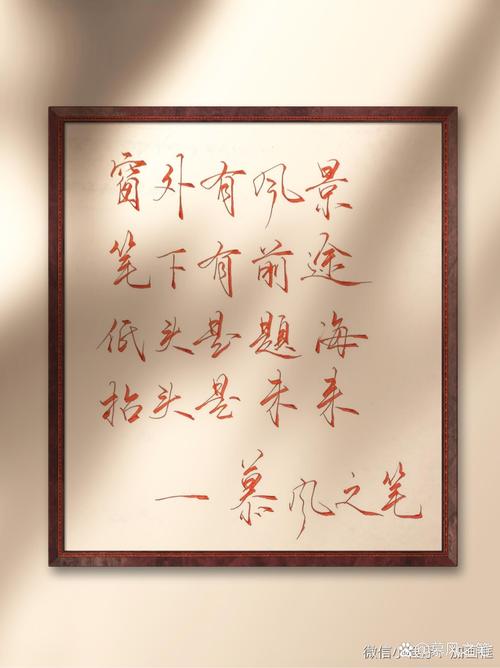 窗外有风景
笔下有前途
低头是题海
抬头是未来
一慕风之笔
微信小程序
加画框
慕风之笔